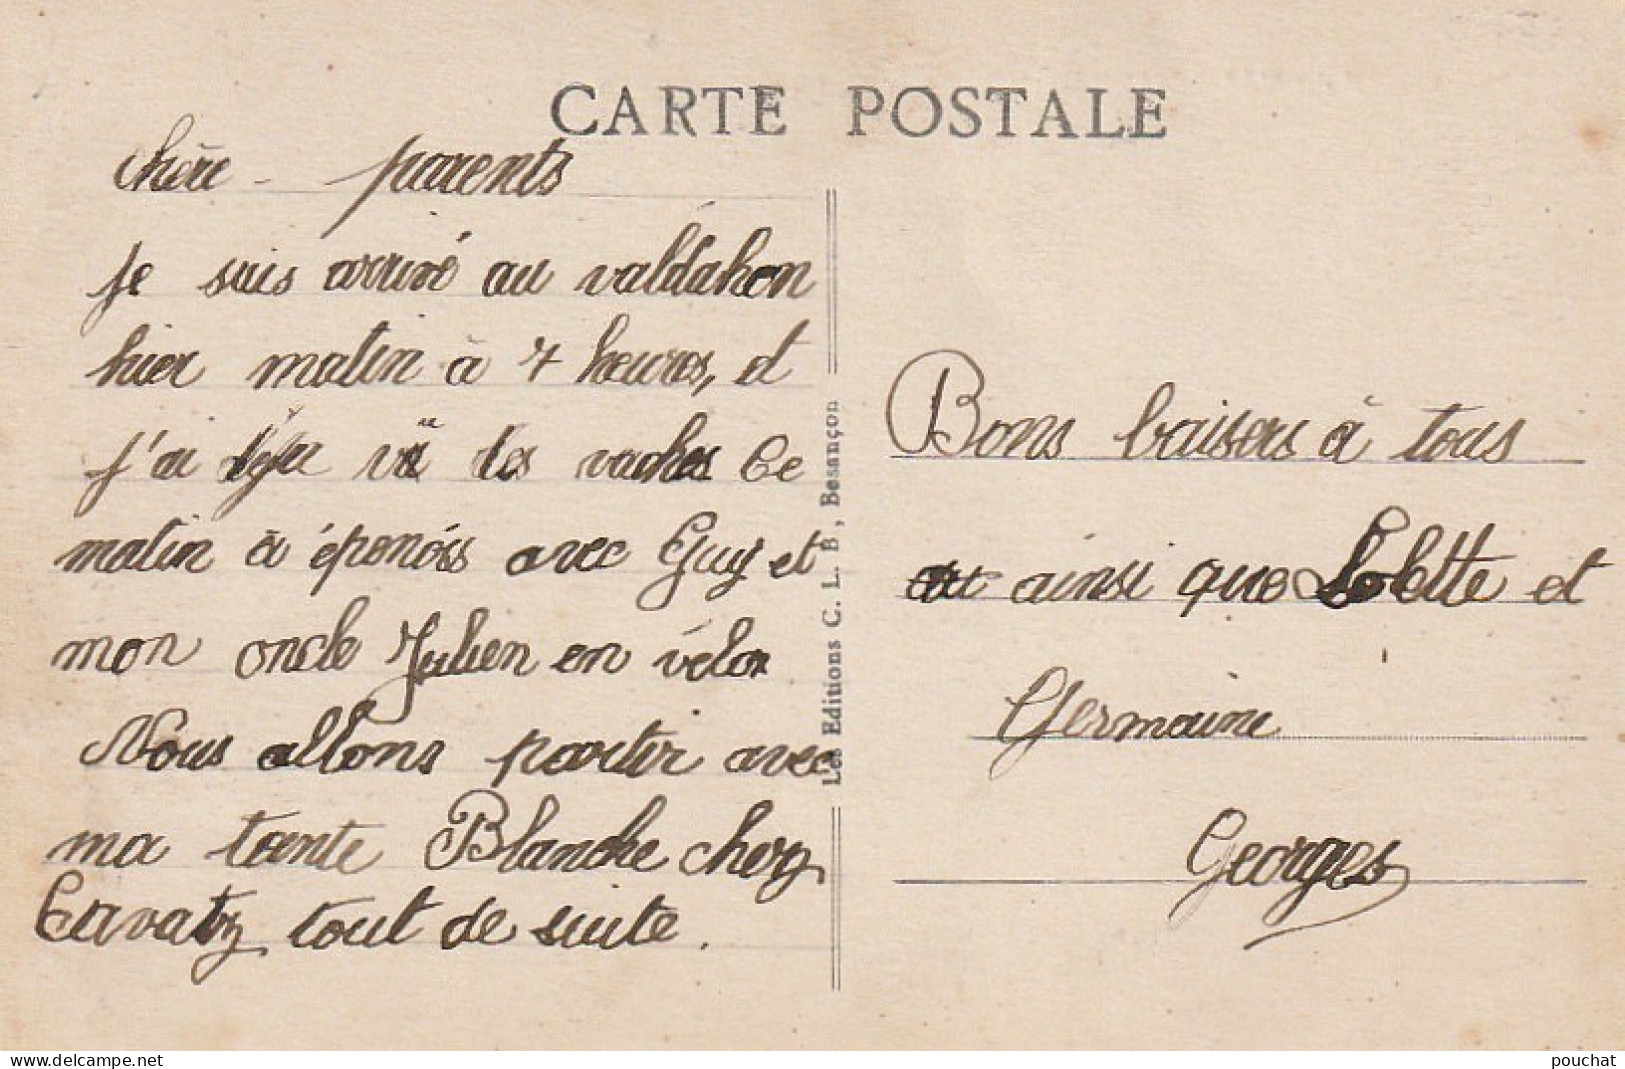 CARTE POSTALE
chère - parents
je suis arrivé au valdahon
hier matin à 7 heures, et
j'ai vü les vaches Ce
matin à éponóis avec Guy et
mon oncle Julien en vélo
Nous allons partir avec
ma tante Blanche cherz
tout de suite.
Les Editions C. L. B, Besançon
Bons baisers à tous
ainsi que Lolette et
Germaine
Georges
pouchat